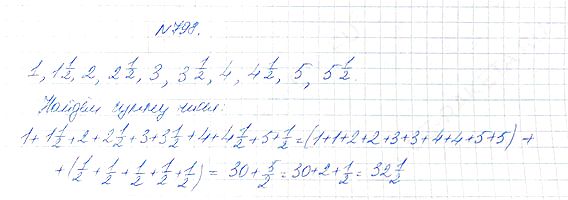 №798.
1, 1 1/2, 2, 2 1/2, 3, 3 1/2, 4, 4 1/2, 5, 5 1/2.
Найдём сумму чисел:
1+1 1/2+2+2 1/2+3+3 1/2+4+4 1/2+5+1/2=(1+1+2+2+3+3+4+4+5+5)+
+(1/2+1/2+1/2+1/2+1/2)=30+5/2=30+2+1/2=32 1/2